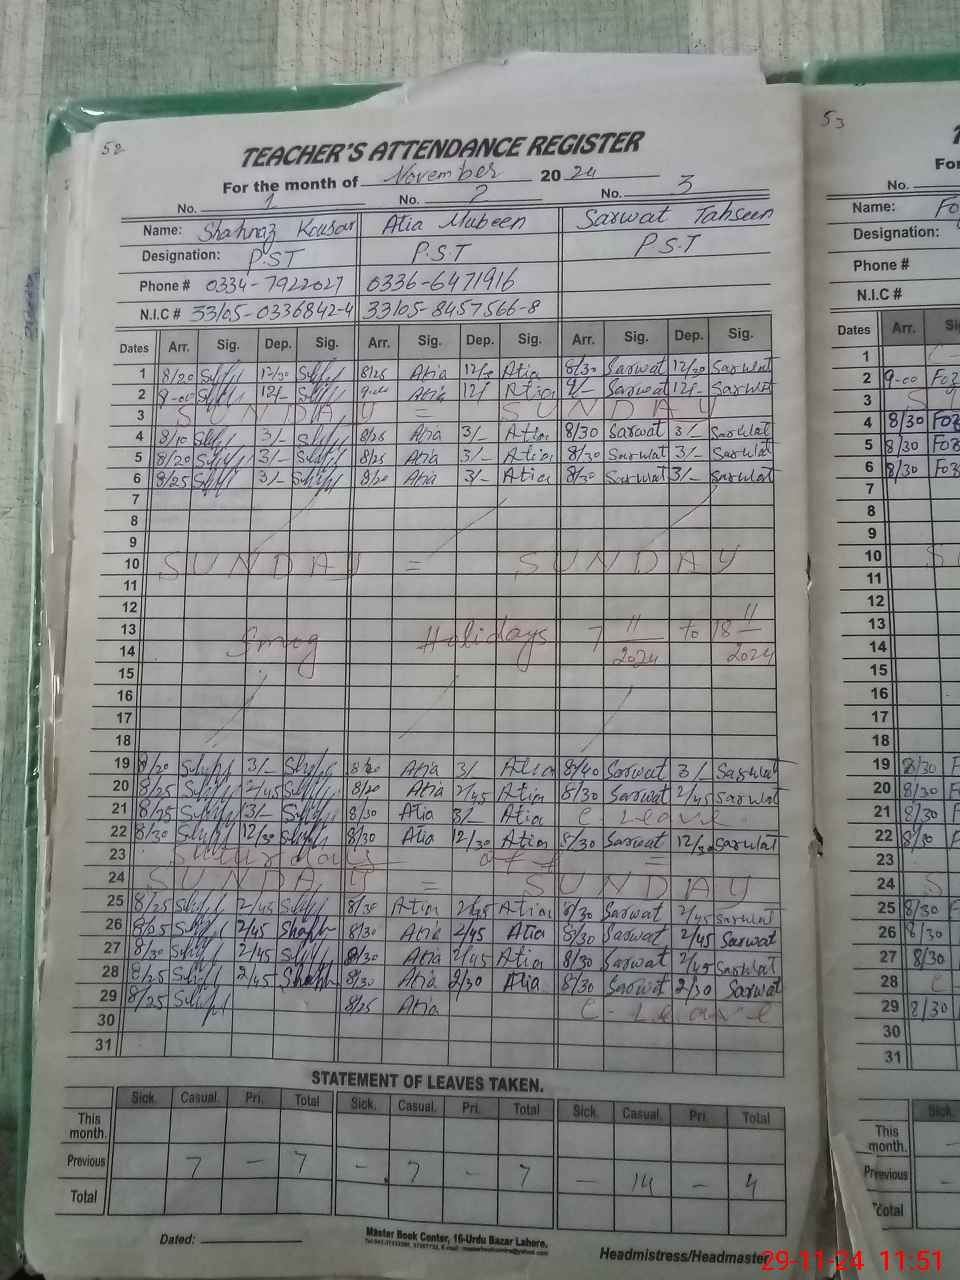 52
TEACHER'S ATTENDANCE REGISTER
For the month of November 2024
No. 1 No. 2 No. 3
Name: Shahnaz Kousar Atia Mubeen Sarwat Tahseen
Designation: P.ST P.S.T P.S.T
Phone # 0334-7922027 0336-6471916
N.I.C # 33105-0336842-4 33105-8457566-8
Dates Arr. Sig. Dep. Sig. Arr. Sig. Dep. Sig. Arr. Sig. Dep. Sig.
1 8/20 12/30 8/25 Atia Atia 8/30 Sarwat 12/30 Sarwat
2 9-00 12/- Atia 12/ Atia 9/- Sarwat 12/- Sarwat
3 SUNDAY = SUNDAY
4 8/10 3/- 8/25 Atia 3/- Atia 8/30 Sarwat 3/- Sarwat
5 8/20 3/- 8/25 Atia 3/- Atia 8/30 Sarwat 3/- Sarwat
6 8/25 3/- 8/20 Atia 3/- Atia 8/30 Sarwat 3/- Sarwat
7
8
9
10 SUNDAY = SUNDAY
11
12
13 Smog Holidays 7 11/2024 to 18 11/2024
14
15
16
17
18
19 8/20 3/- 8/20 Atia 3/- Atia 8/40 Sarwat 3/- Sarwat
20 8/25 2/45 8/20 Atia 2/45 Atia 8/30 Sarwat 2/45 Sarwat
21 8/25 3/- 8/30 Atia 3/- Atia C-Leave
22 8/30 12/30 8/30 Atia 12/30 Atia 8/30 Sarwat 12/30 Sarwat
23 Saturday off =
24 SUNDAY = SUNDAY
25 8/25 2/45 8/30 Atia 2/45 Atia 8/30 Sarwat 2/45 Sarwat
26 8/25 2/45 8/30 Atia 2/45 Atia 8/30 Sarwat 2/45 Sarwat
27 8/30 2/45 8/30 Atia 2/45 Atia 8/30 Sarwat 2/45 Sarwat
28 8/25 2/45 8/30 Atia 2/30 Atia 8/30 Sarwat 2/30 Sarwat
29 8/25 8/25 Atia C-Leave
30
31
STATEMENT OF LEAVES TAKEN.
Sick. Casual. Pri. Total Sick. Casual. Pri. Total Sick. Casual. Pri. Total
This month.
Previous 7 - 7 - 7 - 7 - 14 - 4
Total
Dated:
Master Book Center, 16-Urdu Bazar Lahore.
Headmistress/Headmaster
53
For
No.
Name: Fo
Designation:
Phone #
N.I.C #
Dates Arr. Sig
1
2 9-00 Foz
3
4 8/30 Foz
5 8/30 Foz
6 8/30 Foz
7
8
9
10 S
11
12
13
14
15
16
17
18
19 8/30 F
20 8/30
21 8/30
22 8/30
23
24 S
25 8/30 F
26 8/30
27 8/30
28 C-
29 8/30
30
31
Sick.
This month.
Previous
Total
29-11-24 11:51